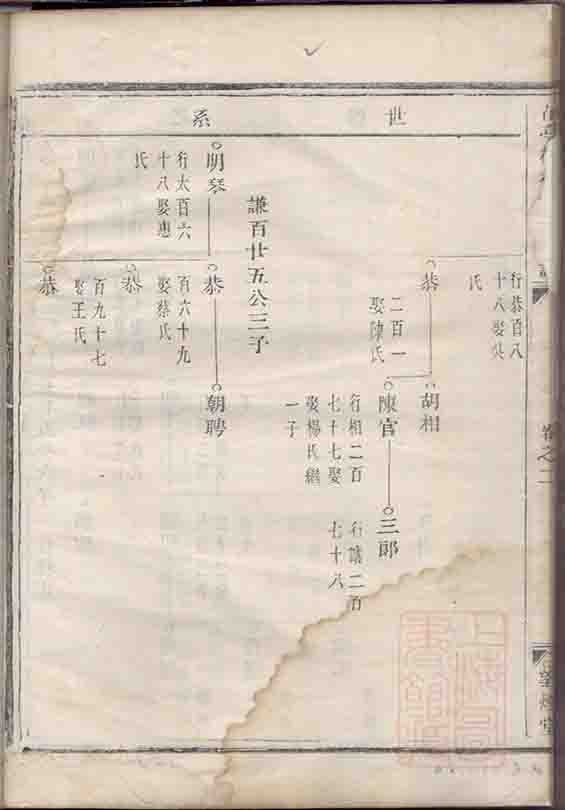 世系
卷之二
行恭百八
十八娶吳
氏
恭
二百一
娶陳氏
胡相
陳官
行相二百
七十七娶
娶楊氏繼
一子
三郎
行謙二百
七十八
謙百廿五公三子
明琴
行太百六
十八娶惠
氏
恭
百六十九
娶蔡氏
朝聘
恭
百九十七
娶王氏
恭
上海圖書館藏